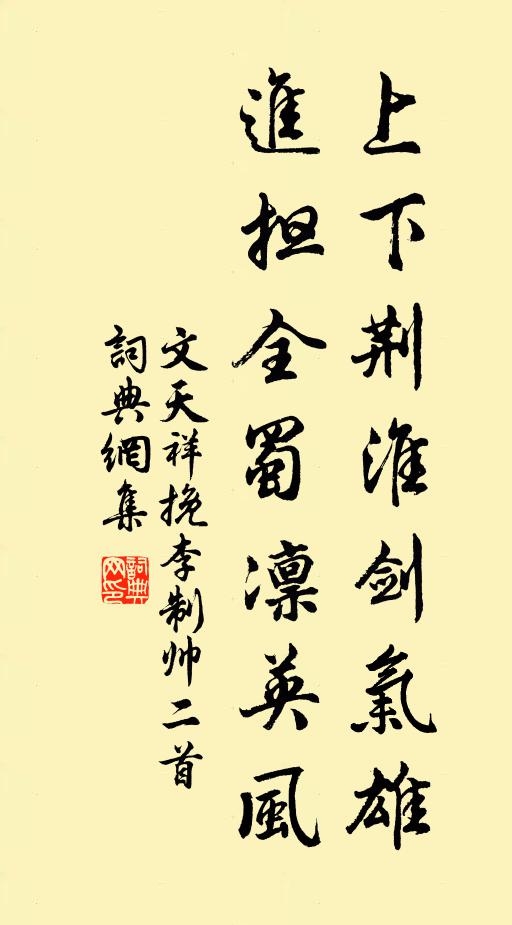 上下荆淮剑氣雄
進担全蜀凛英風
文天祥挽李制帅二首
詞典網集
詞典网印